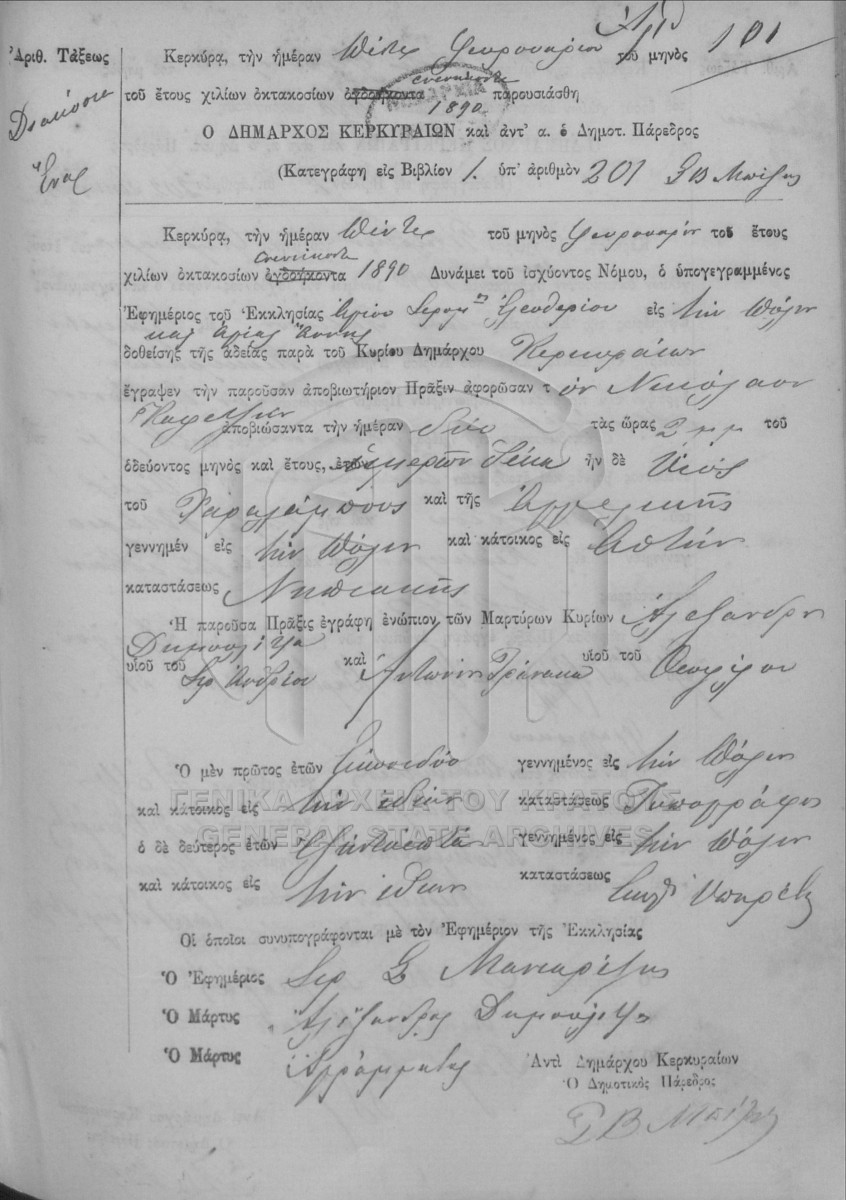 Ἀριθ. Τάξεως
Διακόσια
Ἕνας
101
Κερκύρᾳ, τὴν ἡμέραν Πέντε Φευρουαρίου τοῦ μηνὸς
ἐνενήκοντα
τοῦ ἔτους χιλίων ὀκτακοσίων ὀγδοήκοντα 1890 παρουσιάσθη
Ο ΔΗΜΑΡΧΟΣ ΚΕΡΚΥΡΑΙΩΝ καὶ ἀντ' α. ὁ Δημοτ. Πάρεδρος
(Κατεγράφη εἰς Βιβλίον 1. ὑπ' ἀριθμὸν 201
Κερκύρᾳ, τὴν ἡμέραν Πέντε τοῦ μηνὸς Φευρουαρίου τοῦ ἔτους
ἐνενήκοντα
χιλίων ὀκτακοσίων ὀγδοήκοντα 1890 Δυνάμει τοῦ ἰσχύοντος Νόμου, ὁ ὑπογεγραμμένος
Ἐφημέριος τοῦ Ἐκκλησίας Ἁγίου Ἐλευθερίου εἰς τὴν Πόλιν
καὶ Ἁγίας Ἄννης
δοθείσης τῆς ἀδείας παρὰ τοῦ Κυρίου Δημάρχου Κερκυραίων
ἔγραψεν τὴν παροῦσαν ἀποβιωτήριον Πρᾶξιν ἀφορῶσαν τὸν Νικόλαον
ἀποβιώσαντα τὴν ἡμέραν δύο τὰς ὥρας 2 μμ τοῦ
ὁδεύοντος μηνὸς καὶ ἔτους, ἐτῶν ἡμερῶν δέκα ἦν δὲ Υἱὸς
τοῦ Χαραλάμπους καὶ τῆς Ἀγγελικῆς
γεννημέν εἰς τὴν Πόλιν καὶ κάτοικος εἰς Αὐτήν
καταστάσεως Νηπιακῆς
Ἡ παροῦσα Πρᾶξις ἐγράφη ἐνώπιον τῶν Μαρτύρων Κυρίων Ἀλεξάνδρου
Δημουλίτζα
υἱοῦ τοῦ Σπ Ἀνδρέου καὶ Ἀντωνίου υἱοῦ τοῦ Θεοφίλου
Ὁ μὲν πρῶτος ἐτῶν Εἰκοσιδύο γεννημένος εἰς τὴν Πόλιν
καὶ κάτοικος εἰς τὴν ἰδίαν καταστάσεως Τυπογράφος
ὁ δὲ δεύτερος ἐτῶν Ἑξῆντα ἑπτά γεννημένος εἰς τὴν Πόλιν
καὶ κάτοικος εἰς τὴν ἰδίαν καταστάσεως Ὑπηρέτης
Οἱ ὁποῖοι συνυπογράφονται μὲ τὸν Ἐφημέριον τῆς Ἐκκλησίας
Ὁ Ἐφημέριος
Ὁ Μάρτυς Ἀλέξανδρος Δημουλίτζας
Ὁ Μάρτυς Ἀγράμματος
Ἀντὶ Δημάρχου Κερκυραίων
Ὁ Δημοτικὸς Πάρεδρος
ΓΕΝΙΚΑ ΑΡΧΕΙΑ ΤΟΥ ΚΡΑΤΟΥΣ
GENERAL STATE ARCHIVES